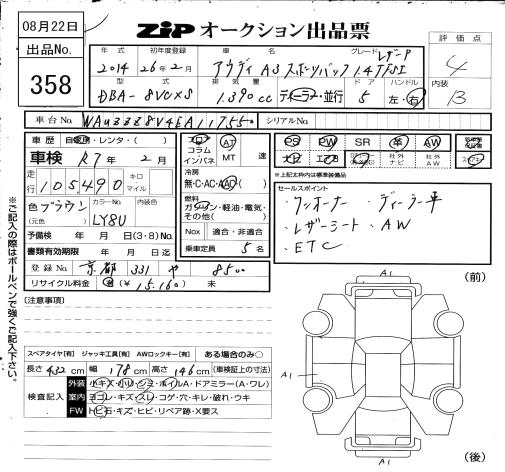 08月22日
ZIP オークション出品票
出品No.
358
評価点
4
内装
B
年式 初年度登録 車名 グレード
2014 26年2月 アウディ A3 スポーツバック 1.4TFSI
レザーP
型式 排気量 ドア ハンドル
DBA-8VCXS 1,390cc ディーラー・並行 5 左・右
車台No.
シリアルNo.
車歴 自家用・レンタ・( )
車検 R7年 2月
走行 105,490 キロ マイル
色 ブラウン
(元色)
カラーNo.
LY8U
内装色
予備検 年 月 日(3・8)No.
書類有効期限 年 月 日迄
登録No. 京都 331 や 8500
リサイクル料金 有(¥15,160) 未
フロア
コラム
インパネ
AT
MT
速
冷房
無・C・AC・AAC
燃料
ガソリン・軽油・電気・
その他( )
Nox 適合・非適合
乗車定員 5名
PS PW SR 革 AW
エアB
社外ナビ
社外AW
※上記太枠内は標準装備品
セールスポイント
・ワンオーナー ・ディーラー車
・レザーシート ・AW
・ETC
※ご記入の際はボールペンで強くご記入下さい。
(注意事項)
スペアタイヤ[有] ジャッキ工具[有] AWロックキー[有] ある場合のみ○
長さ 432cm 幅 178cm 高さ 146cm (車検証上の寸法)
検査記入
外装 小キズ・小凹・シミ・ホイルA・ドアミラー(A・ワレ)
室内 ヨゴレ・キズ・スレ・コゲ・穴・キレ・破れ・ウキ
FW トビ石・キズ・ヒビ・リペア跡・X要ス
(前)
A1
A1
A1
(後)